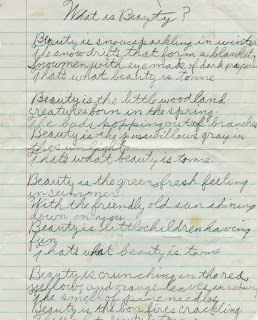 What is Beauty?
Beauty is snow sparkling in winter
The snowdrifts that form a blanket,
Snowmen with eyes made of dark gray coal
Thats what beauty is to me
Beauty is the little woodland
creatures born in the spring
The buds popping out of branches
Beauty is the pussiwillows gray in
the sunlight
Thats what beauty is to me.
Beauty is the green fresh feeling
in summer
With the friendly old sun shining
down on you
Beauty is little children having
fun
Thats what beauty is to me
Beauty is crunching in the red,
yellow, and orange leaves in autumn
The smell of pine needles
Beauty is the bonfires crackling
Thats what beauty is to me